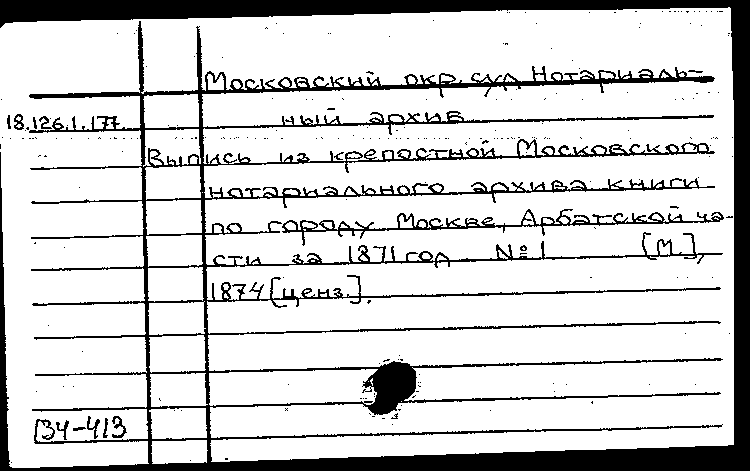 Московский окр. суд Нотариаль-
18.126.1.177. ный архив
Выпись из крепостной Московского
нотариального архива книги
по городу Москве, Арбатской ча-
сти за 1871 год № 1 [М.],
1874 [ценз.].
134-413